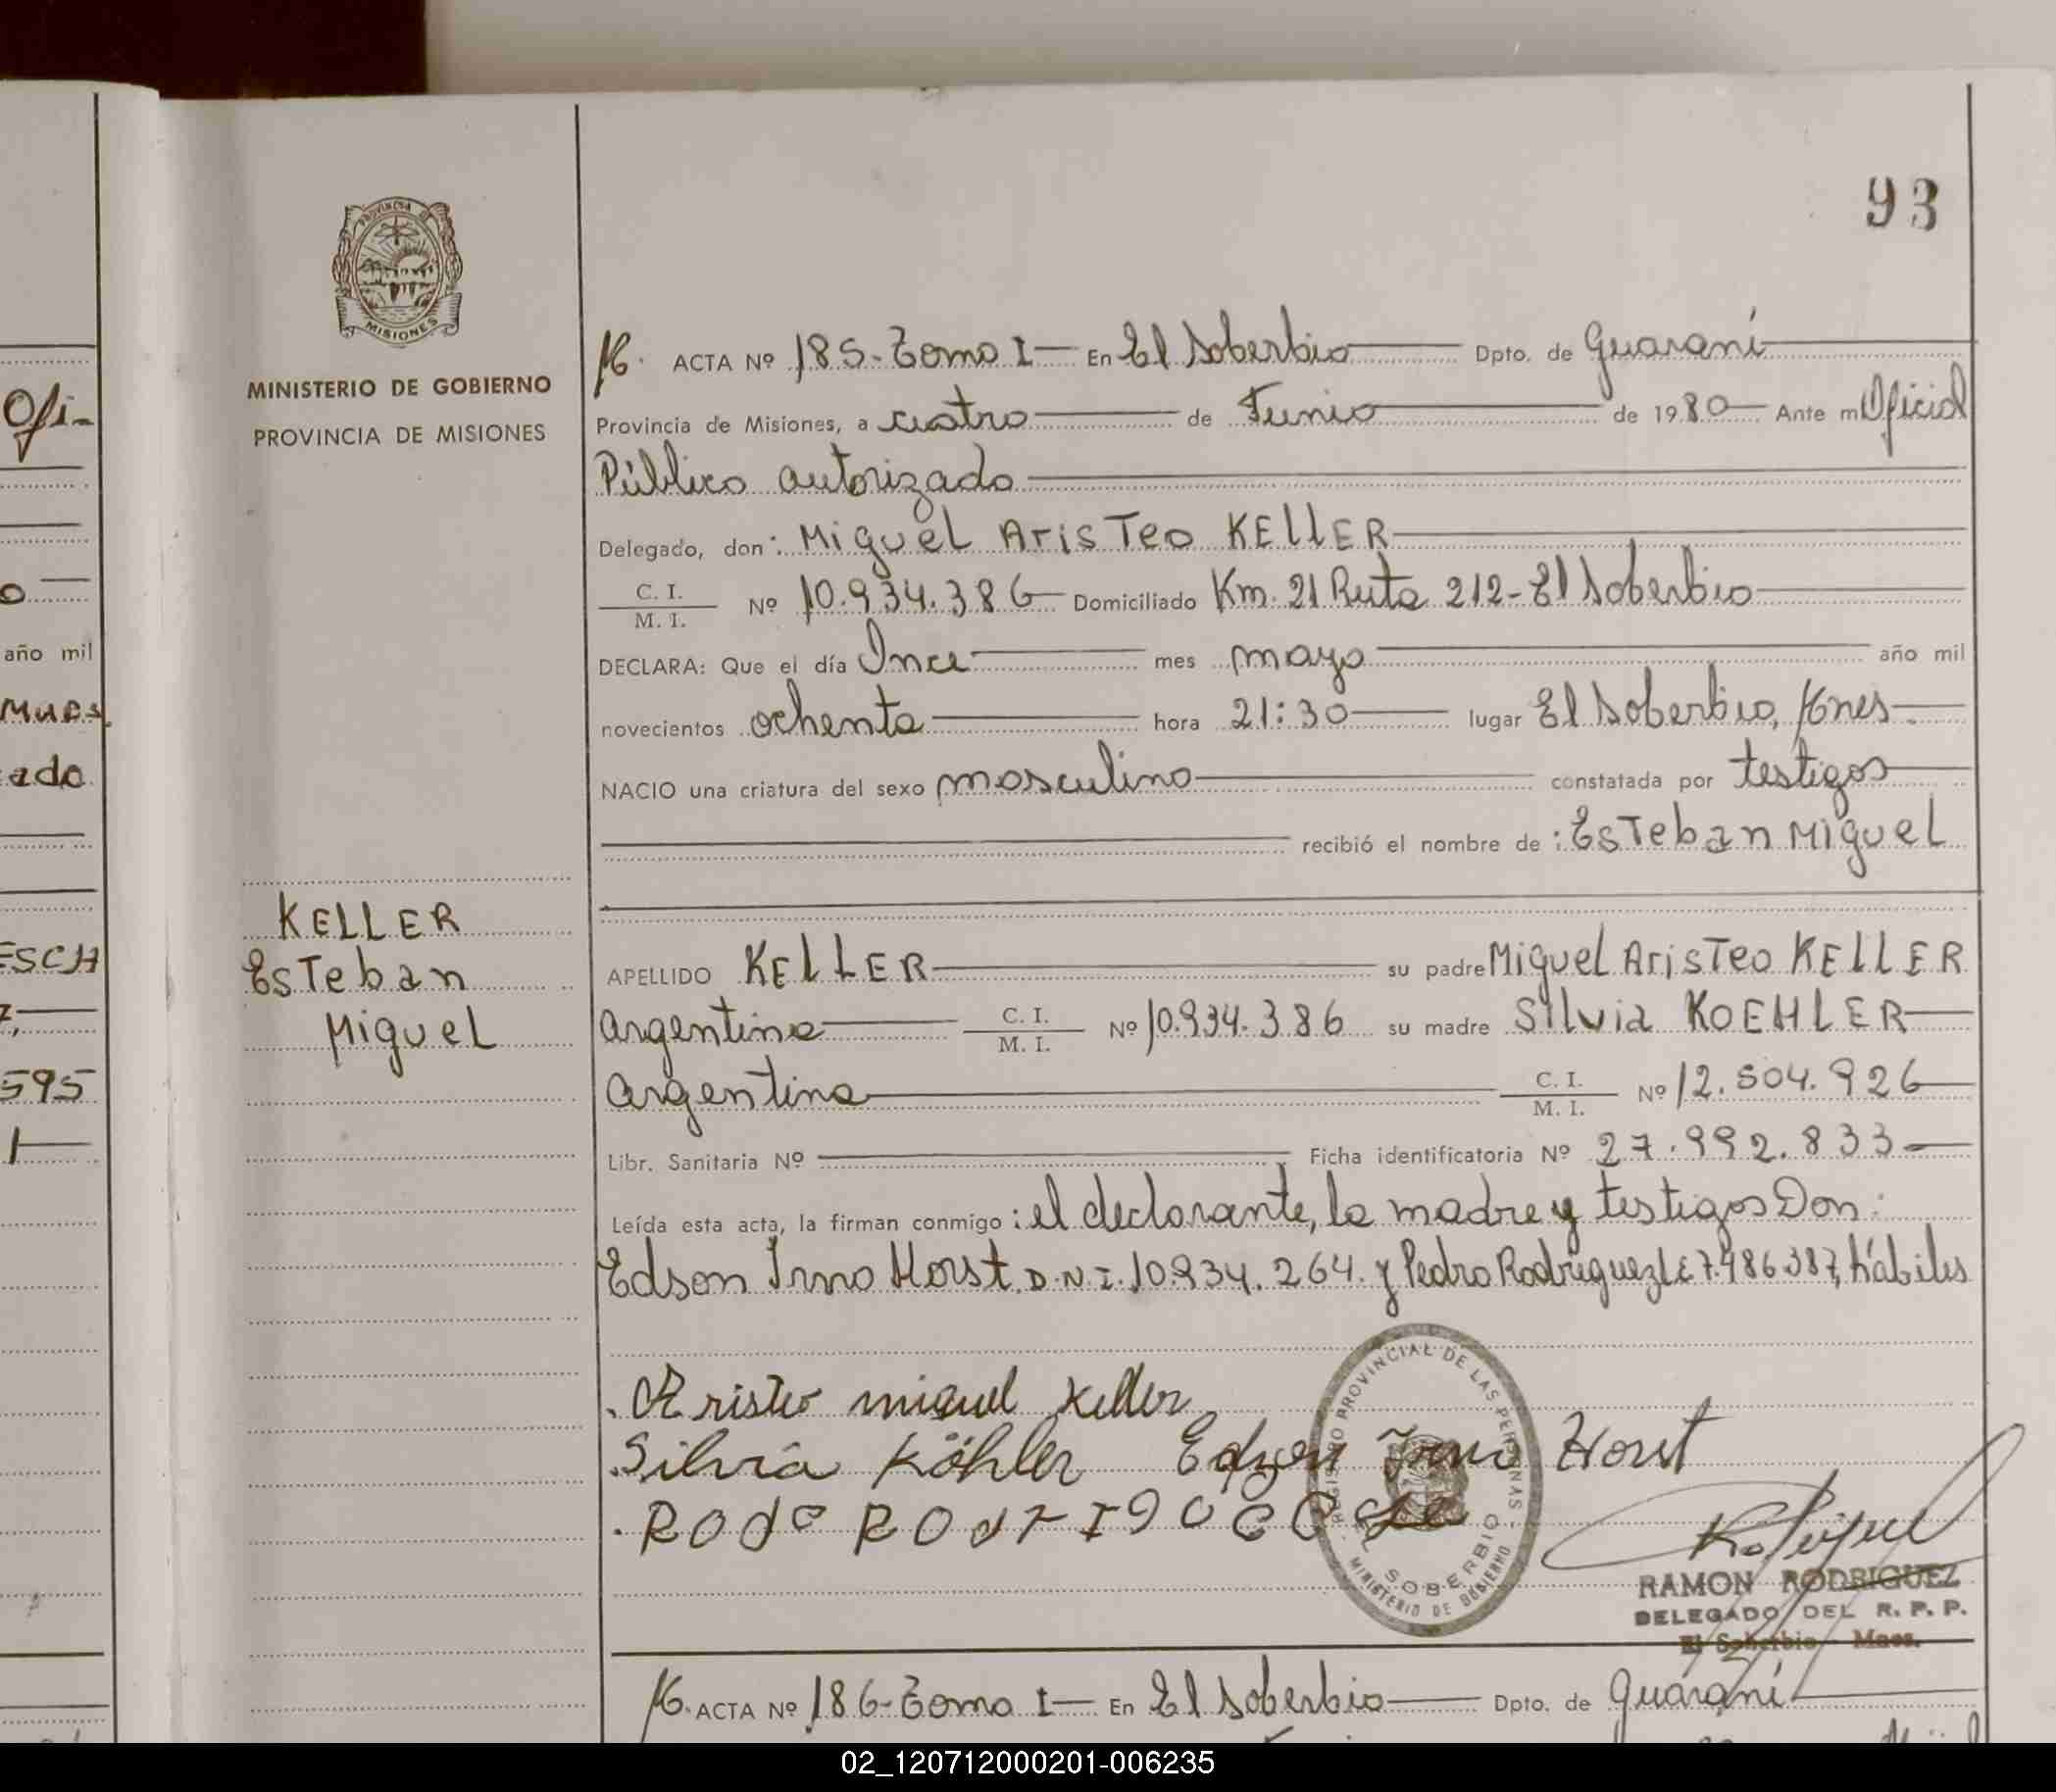 93
PROVINCIA DE
MISIONES
MINISTERIO DE GOBIERNO
PROVINCIA DE MISIONES
M. ACTA Nº 185-Tomo I- En El Soberbio Dpto. de Guaraní
Provincia de Misiones, a cuatro de Junio de 1980 Ante mi Oficial
Público autorizado
Delegado, don: Miguel Aristeo KELLER
C. I. / M. I. Nº 10.934.386 Domiciliado Km. 21 Ruta 212-El Soberbio
DECLARA: Que el día Once mes mayo año mil
novecientos ochenta hora 21:30 lugar El Soberbio, Mnes-
NACIO una criatura del sexo masculino constatada por testigos
recibió el nombre de: Esteban Miguel
KELLER
Esteban
Miguel
APELLIDO KELLER su padre Miguel Aristeo KELLER
argentina C. I. / M. I. Nº 10.934.386 su madre Silvia KOEHLER
argentina C. I. / M. I. Nº 12.504.926
Libr. Sanitaria Nº Ficha identificatoria Nº 27.992.833-
Leída esta acta, la firman conmigo: el declarante, la madre y testigos Don:
Edson Irno Horst. D.N.I. 10.934.264. y Pedro Rodriguez L.E 7.486.387, hábiles
Aristeo miguel Keller
Silvia Köhler Edson Irno Horst
REGISTRO PROVINCIAL DE LAS PERSONAS
EL SOBERBIO
MINISTERIO DE GOBIERNO
RAMON RODRIGUEZ
DELEGADO DEL R. P. P.
El Soberbio - Mnes.
M. ACTA Nº 186-Tomo I- En El Soberbio Dpto. de Guaraní
Ofi-
año mil
ado
ESCH
595
02_120712000201-006235